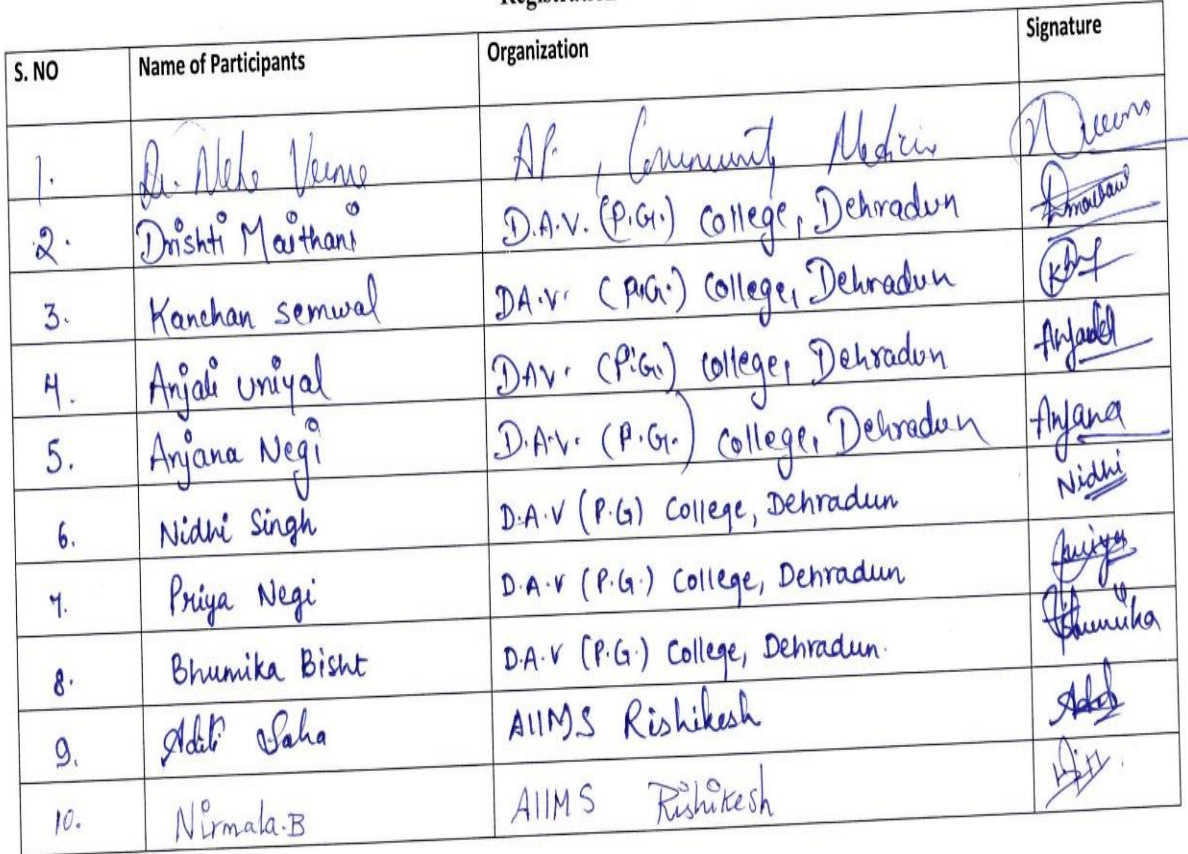 Registration
S. NO Name of Participants Organization Signature
1. Dr. Neha Verma AP. , Community Medicin
2. Drishti Maithani D.A.V. (P.G.) College, Dehradun
3. Kanchan Semwal DA.V. (P.G.) College, Dehradun
4. Anjali Uniyal DAV. (P.G.) College, Dehradun Anjali
5. Anjana Negi D.A.V. (P.G.) College, Dehradun Anjana
6. Nidhi Singh D.A.V (P.G) College, Dehradun Nidhi
7. Priya Negi D.A.V (P.G.) College, Dehradun Priya
8. Bhumika Bisht D.A.V (P.G.) College, Dehradun. Bhumika
9. Aditi Saha AIIMS Rishikesh
10. Nirmala.B AIIMS Rishikesh